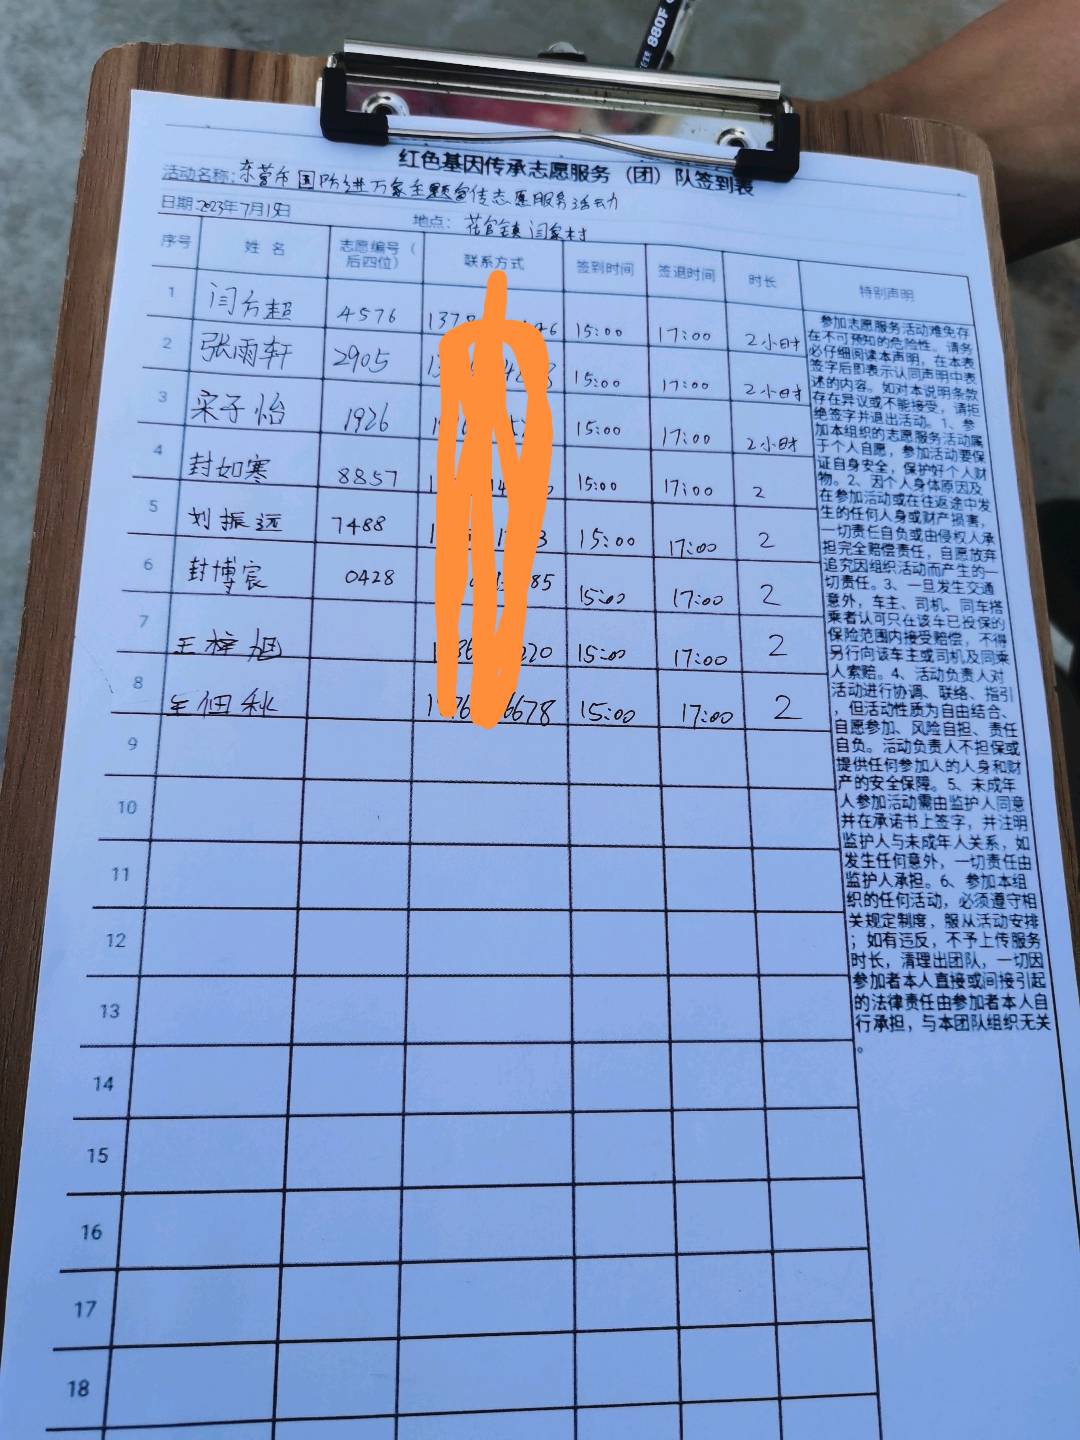 880F
红色基因传承志愿服务（团）队签到表
活动名称：东营市国防进万家主题宣传志愿服务活动
日期：2023年7月15日 地点： 花官镇闫家村
序号 姓 名 志愿编号（后四位） 联系方式 签到时间 签退时间 时长 特别声明
1 闫方超 4576 15:00 17:00 2小时
2 张雨轩 2905 15:00 17:00 2小时
3 梁子怡 1926 15:00 17:00 2小时
4 封如寒 8857 15:00 17:00 2
5 刘振远 7488 15:00 17:00 2
6 封博宸 0428 15:00 17:00 2
7 王梓旭 15:00 17:00 2
8 王佃秋 6678 15:00 17:00 2
9
10
11
12
13
14
15
16
17
18
参加志愿服务活动难免存
在不可预知的危险性，请务
必仔细阅读本声明，在本表
签字后即表示认同声明中表
述的内容。如对本说明条款
存在异议或不能接受，请拒
绝签字并退出活动。1、参
加本组织的志愿服务活动属
于个人自愿，参加活动要保
证自身安全，保护好个人财
物。2、因个人身体原因及
在参加活动或在往返途中发
生的任何人身或财产损害，
一切责任自负或由侵权人承
担完全赔偿责任，自愿放弃
追究因组织活动而产生的一
切责任。3、一旦发生交通
意外，车主、司机、同车搭
乘者认可只在该车已投保的
保险范围内接受赔偿，不得
另行向该车主或司机及同乘
人索赔。4、活动负责人对
活动进行协调、联络、指引
，但活动性质为自由结合、
自愿参加、风险自担、责任
自负。活动负责人不担保或
提供任何参加人的人身和财
产的安全保障。5、未成年
人参加活动需由监护人同意
并在承诺书上签字，并注明
监护人与未成年人关系，如
发生任何意外，一切责任由
监护人承担。6、参加本组
织的任何活动，必须遵守相
关规定制度，服从活动安排
；如有违反，不予上传服务
时长，清理出团队，一切因
参加者本人直接或间接引起
的法律责任由参加者本人自
行承担，与本团队组织无关
。